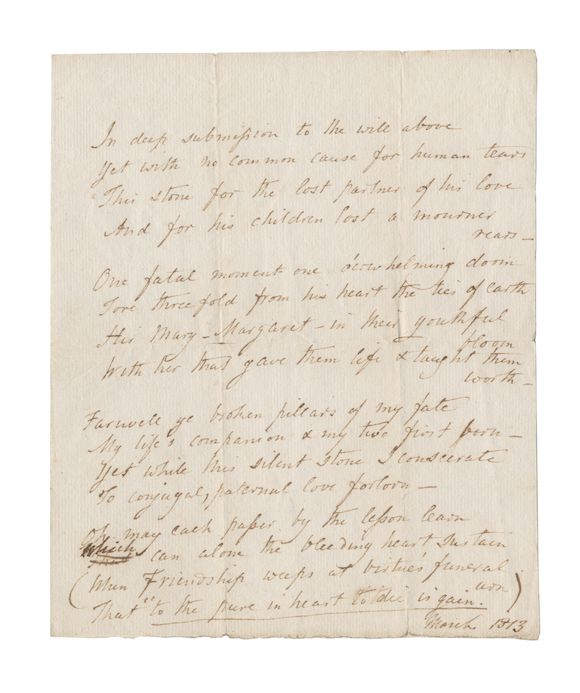 In deep submission to the will above
Yet with no common cause for human tears
This stone for the lost partner of his love
And for his children lost a mourner
rears —
One fatal moment one o'erwhelming doom
Tore threefold from his heart the ties of earth
His Mary – Margaret – in their youthful
bloom
With her that gave them life & taught them
worth –
Farewell ye broken pillars of my fate
My life's companion & my two first born –
Yet while this silent stone I consecrate
To conjugal, paternal love forlorn –
Oh may each passer by the lesson learn
Which can alone the bleeding heart sustain
(When Friendship weeps at virtue's funeral
urn)
That "to the pure in heart to die is gain.
March 1813